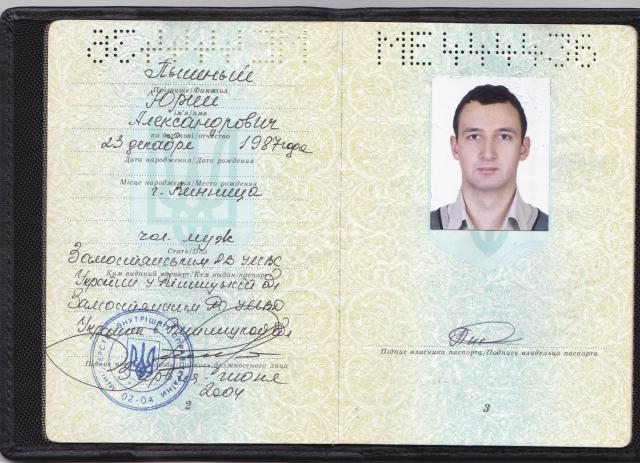 МЕ 444436
Пышный
Прізвище/Фамилия
Юрий
ім'я/имя
Александрович
по батькові/отчество
23 декабря 1987 года
Дата народження/Дата рождения
Місце народження/Место рождения
г. Винница
чол. муж
Стать/Пол
Замостянським РВ УМВС
Ким виданий паспорт/Кем выдан паспорт
України у Вінницькій обл
Замостянским РО УМВД
Украины в Винницкой обл
Підпис
Подпись должностного лица
июня
2004
02-04
2
Підпис власника паспорта/Подпись владельца паспорта
3